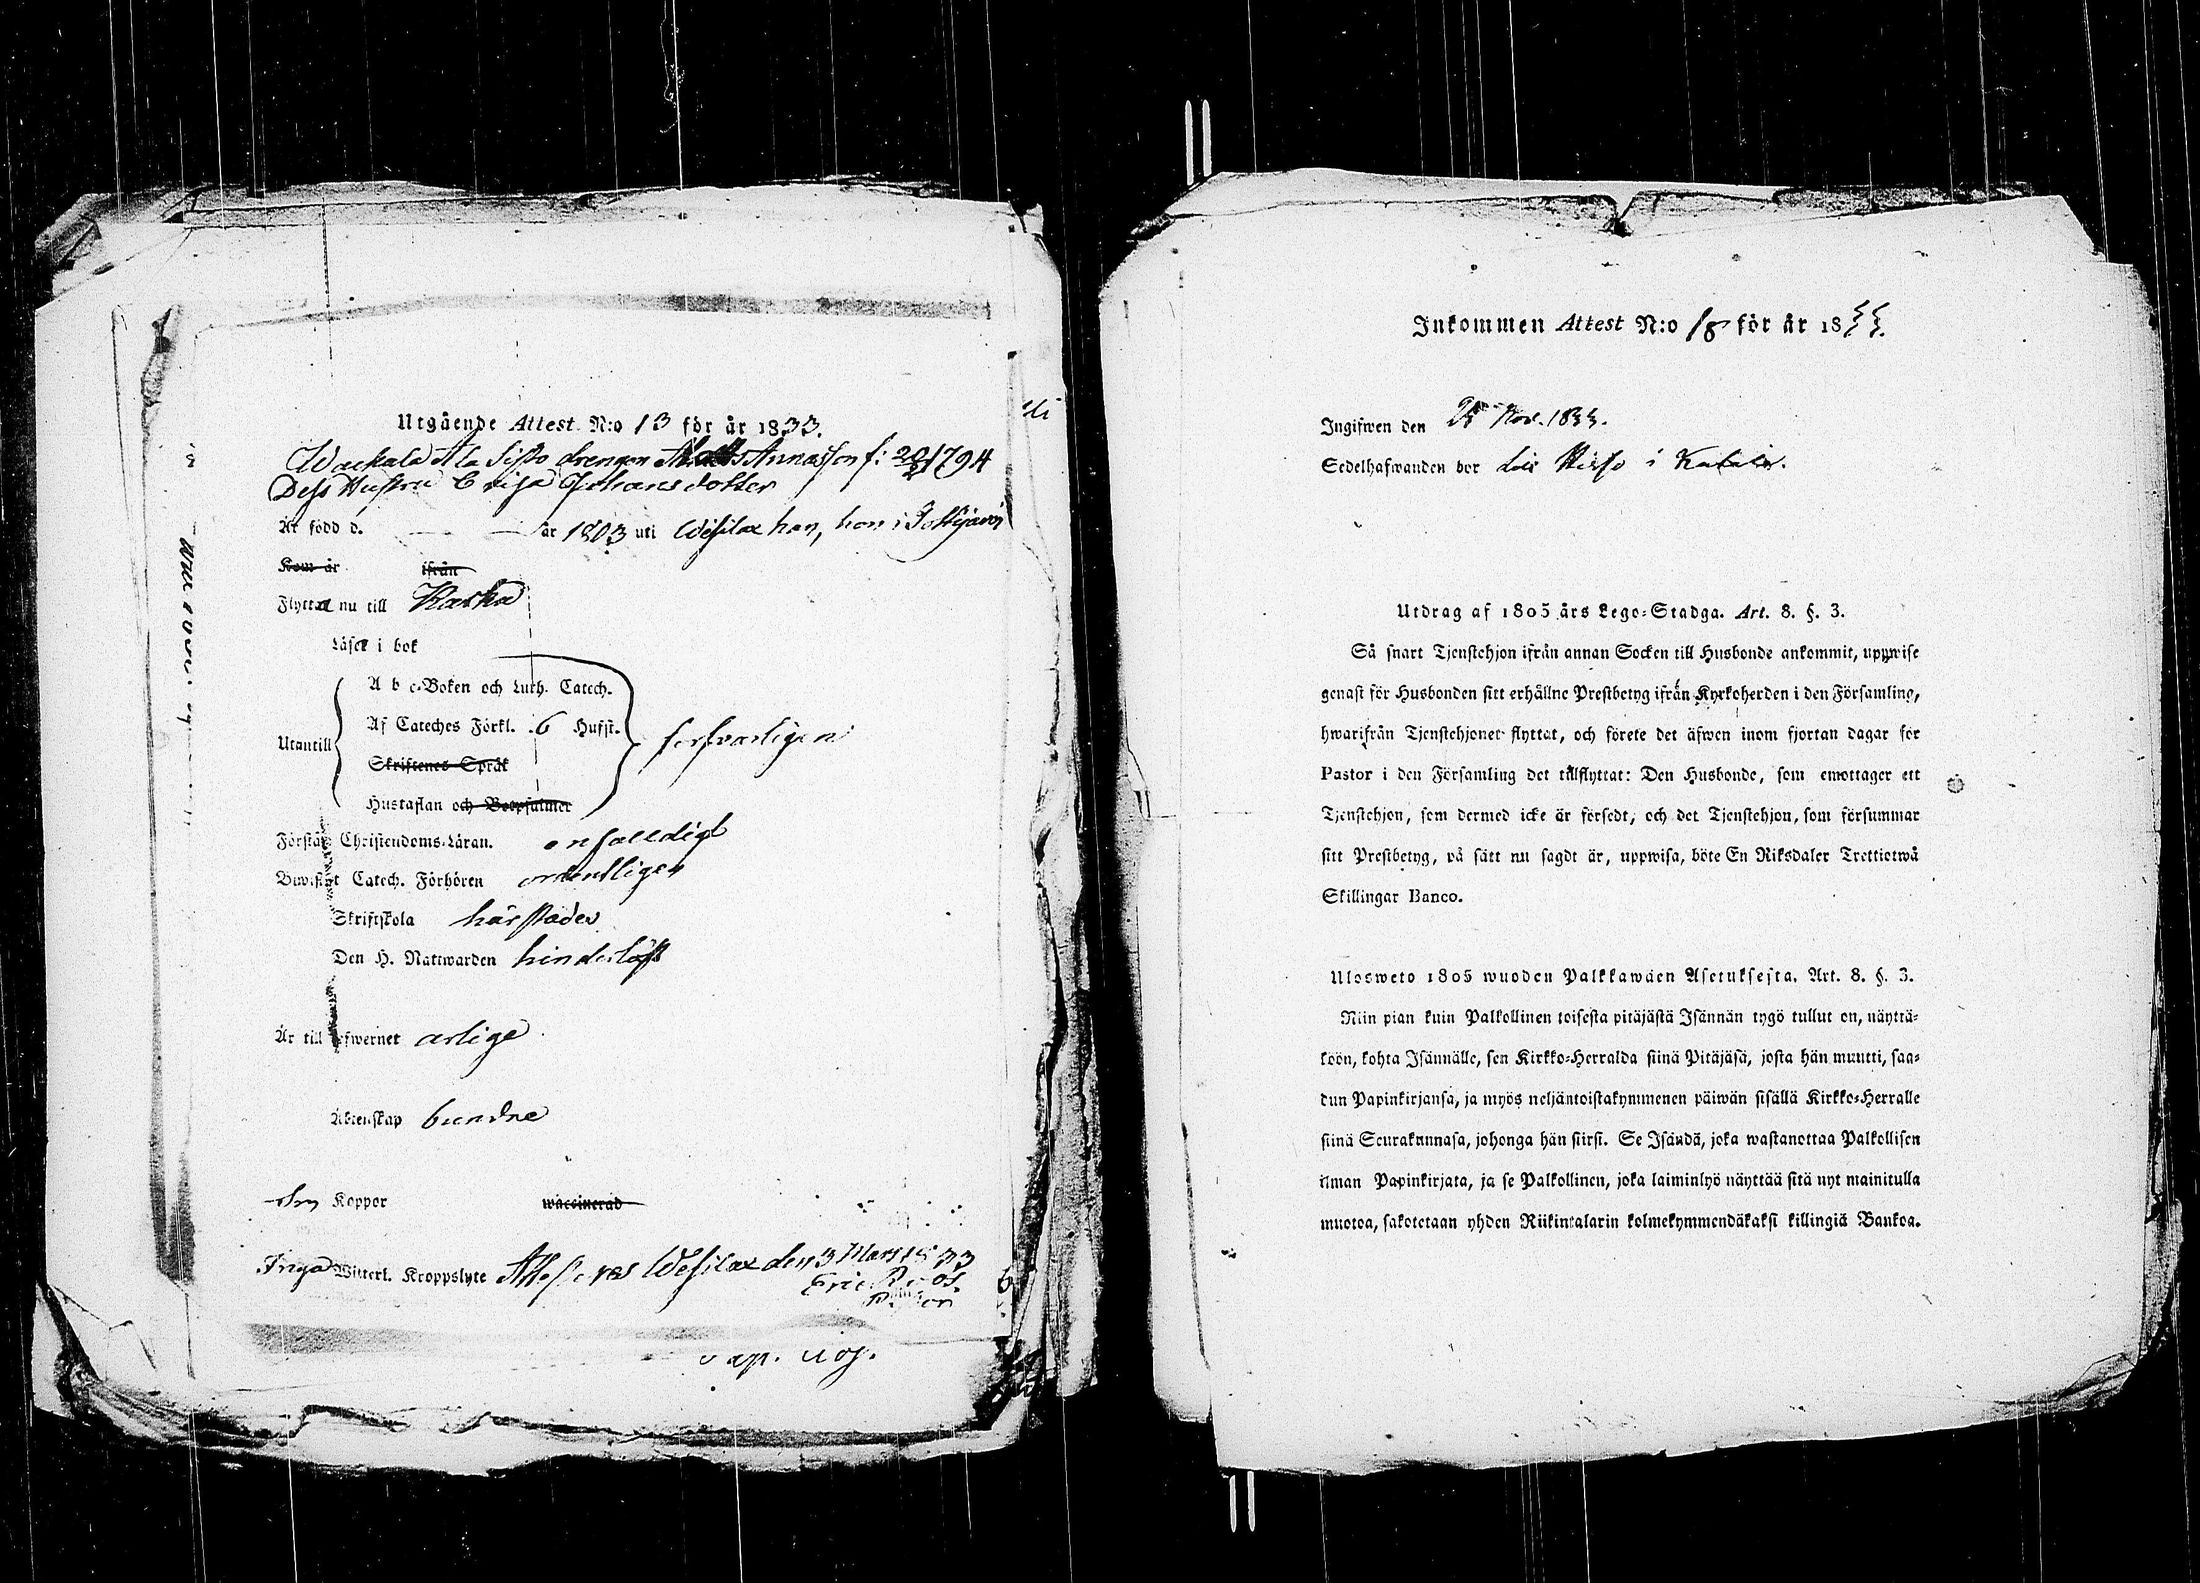 Utgående Attest N:o 13 för år 1833.
Wackala Ala Sisto drengen Matts Annasson f: 20/2 1794
Dess Hustru Caisa Johansdotter
Är född d. — — år 1803 uti Wesilax han, hon i Tottijärvi
Kom år ifrån
Flytta nu till Karkku
Läser i bok
A b c-Boken och Luth. Catech.
Af Cateches Förkl. 6 Hufst.
Utantill försvarligen
Skriftenes Språk
Hustaflan och Botpsalmer
Förstår Christendoms-Läran. enfalldigt
Bewistat Catech. Förhören ordentligen
Skriftskola härstädes
Den H. Nattwarden hinderlöst
Är till lefwernet ärlige
Äktenskap bundne
Koppor waccinerad
Inga Witterl. Kroppslyte Attesteras Wesilax den 3 Mars 1833
Eric Roos.
Pastor
Inkommen Attest N:o 18 för år 1833.
Ingifwen den 25 Nov. 1833.
Sedelhafwanden bor i
Utdrag af 1805 års Lego-Stadga. Art. 8. §. 3.
Så snart Tjenstehjon ifrån annan Socken till Husbonde ankommit, uppwise
genast för Husbonden sitt erhållne Prestbetyg ifrån Kyrkoherden i den Församling,
hwarifrån Tjenstehjonet flyttat, och förete det äfwen inom fjortan dagar för
Pastor i den Församling det tillflyttat: Den Husbonde, som emottager ett
Tjenstehjon, som dermed icke är försedt, och det Tjenstehjon, som försummar
sitt Prestbetyg, på sätt nu sagdt är, uppwisa, böte En Riksdaler Trettiotwå
Skillingar Banco.
Ulosweto 1805 wuoden Palkkawäen Asetuksesta. Art. 8. §. 3.
Niin pian kuin Palkollinen toisesta pitäjästä Isännän tygö tullut on, näyttä-
köön, kohta Isännälle, sen Kirkko-Herralda siinä Pitäjäsä, josta hän muutti, saa-
dun Papinkirjansa, ja myös neljäntoistakymmenen päiwän sisällä Kirkko-Herralle
siinä Seurakunnasa, johonga hän siirsi. Se Isändä, joka wastanottaa Palkollisen
ilman Papinkirjata, ja se Palkollinen, joka laiminlyö näyttää sitä nyt mainitulla
muotoa, sakotetaan yhden Riikintalarin kolmekymmendäkaksi killingiä Bankoa.